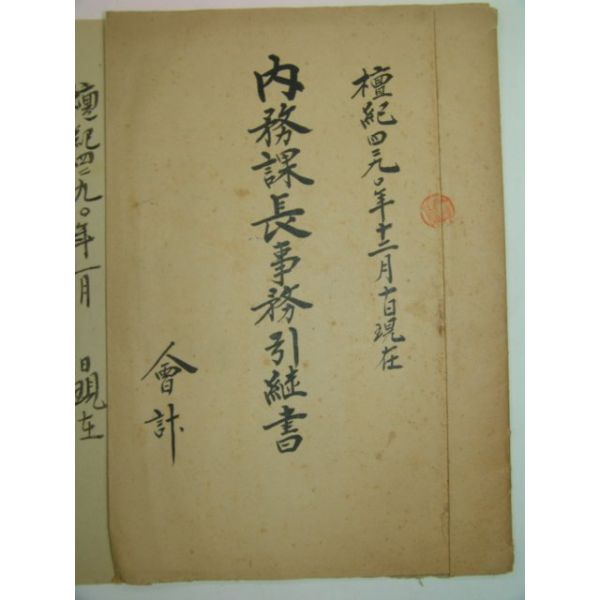 檀紀四二九〇年十二月十日現在
内務課長事務引継書
會計
檀紀四二九〇年一月 日現在